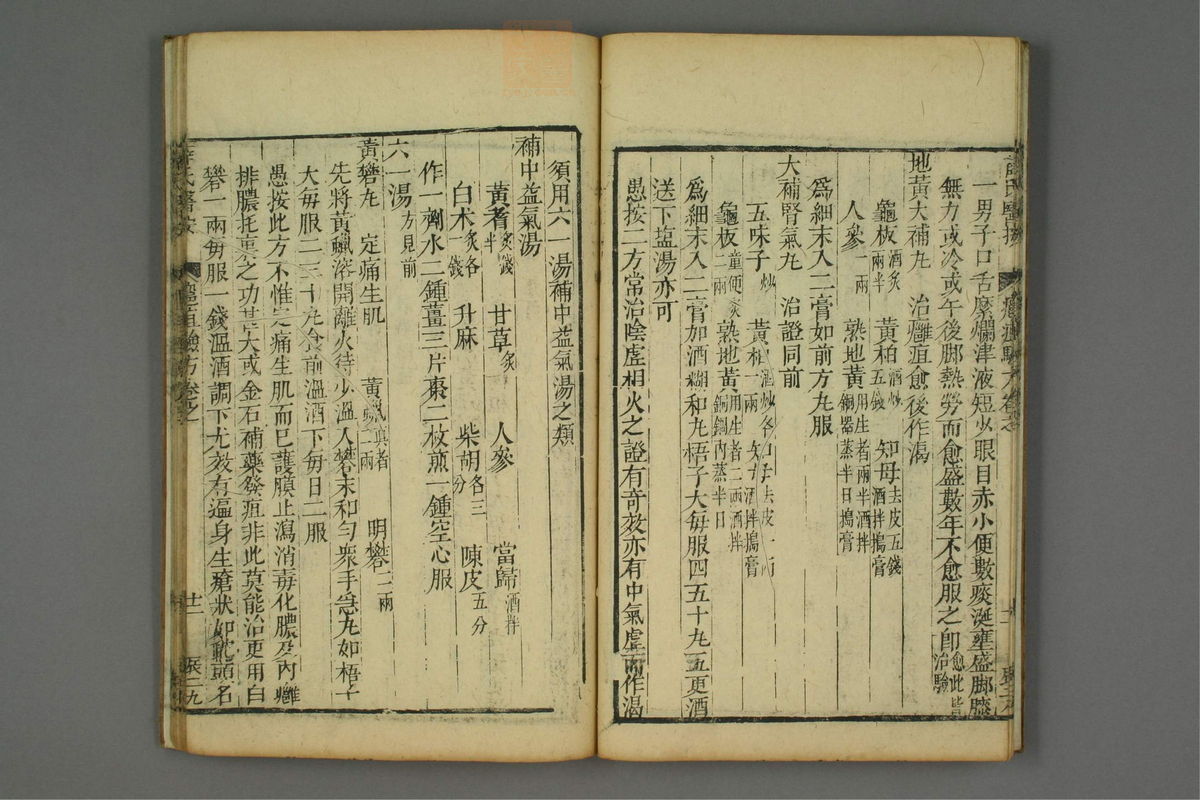 一男子口舌糜爛津液短少眼目赤小便數痰涎壅盛脚膝
無力或冷或午後脚熱勞而愈盛數年不愈服之即愈此皆治驗
地黃大補丸　治癰疽愈後作渴
龜板酒炙兩半　黃柏酒炒五錢　知母去皮五錢酒拌搗膏
人參一兩　熟地黃用生者兩半酒拌銅器蒸半日搗膏
爲細末入二膏如前方丸服
大補腎氣丸　治證同前
五味子炒　黃柏酒炒各一兩　知母去皮一兩酒拌搗膏
龜板童便炙二兩　熟地黃用生者二兩酒拌銅鍋內蒸半日
爲細末入二膏加酒糊和丸梧子大每服四五十丸五更酒
送下塩湯亦可
愚按二方常治陰虛相火之證有奇效亦有中氣虛而作渴
須用六一湯補中益氣湯之類
補中益氣湯
黃耆炙錢半　甘草炙　人參　當歸酒拌
白术炙各一錢　升麻　柴胡各三分　陳皮五分
作一劑水二鍾薑三片棗二枚煎一鍾空心服
六一湯方見前
黃礬丸　定痛生肌　黃蠟真者一兩　明礬二兩
先將黃蠟溶開離火待少溫入礬末和勻衆手急丸如梧子
大每服二三十丸食前溫酒下每日二服
愚按此方不惟定痛生肌而已護膜止瀉消毒化膿及內癰
排膿托裏之功甚大或金石補藥發疽非此莫能治更用白
礬一兩每服一錢溫酒調下尤效有遍身生瘡狀如蛇頭名
薛氏醫按　癰疽驗方卷之　廿一　辰二九